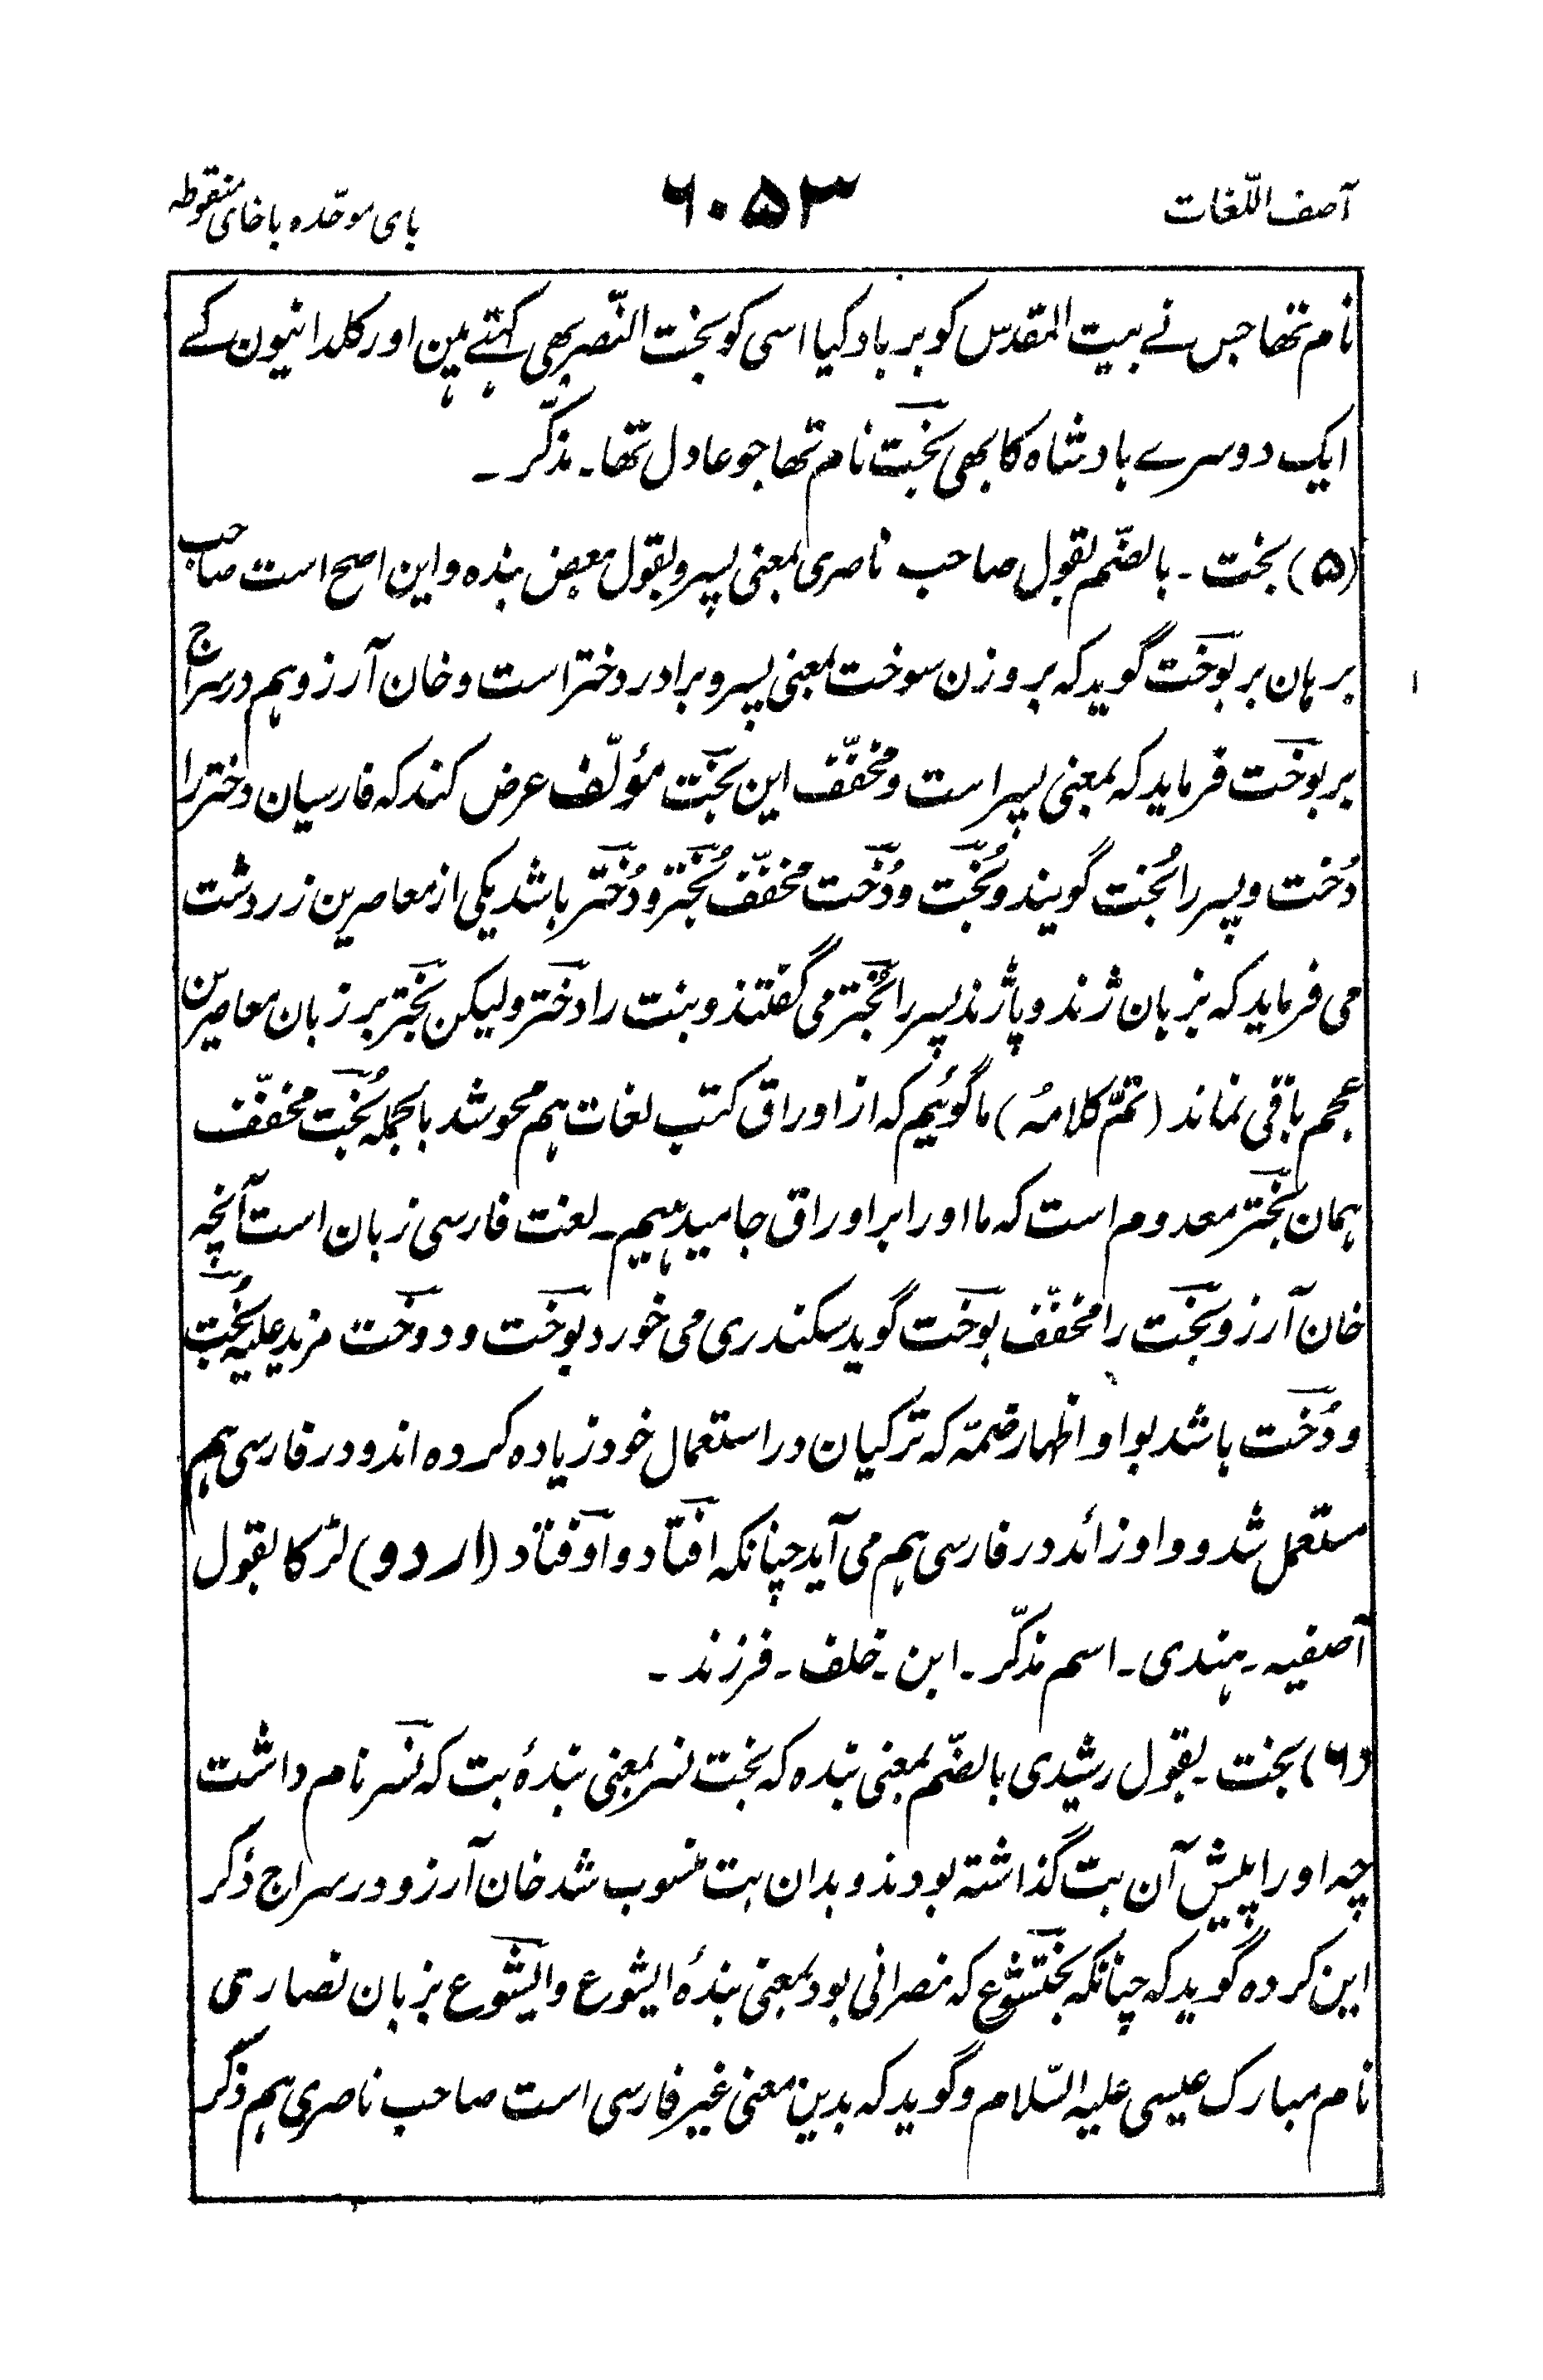 آصف اللّغات ۶۰۵۳ بای موحّده باخای منقوطہ
نام تھا جس نے بیت المقدس کو برباد کیا اسی کو بخت النّصر بھی کہتے ہین اور کلدانیون کے
ایک دوسرے بادشاہ کا بھی بخت نام تھا جو عادل تھا۔ مذکّر۔
(۵) بخت۔ بالضّم بقول صاحب ناصری بمعنی پسر و بقول بعض بندہ و این اصح است صاحب
برہان بر بوخت گوید کہ بر وزن سوخت بمعنی پسر و برادر دختر است و خان آرزو ہم در سراج
بر بوخت فرماید کہ بمعنی پسر است و مخفّف این بخت مؤلّف عرض کند کہ فارسیان دختر را
دُخت و پسر را بُخت گویند و بُخت و دُخت مخفّف بُختر و دُختر باشد یکی از معاصرین زردشت
می فرماید کہ بزبان ژند و پاژند پسر را بُختر می گفتند و بنت را دختر و لیکن بختر بر زبان معاصرین
عجم باقی نماند (تمّ کلامہُ) ما گوئیم کہ از اوراق کتب لغات ہم محو شد بالجملہ بُخت مخفّف
ہمان بختر معدوم است کہ ما او را بر اوراق جا میدہیم۔ لغت فارسی زبان است آنچہ
خان آرزو بخت را مخفّف بوخت گوید سکندری می خورد بوخت و دوخت مزید علیہ بُخت
و دُخت باشد بواو اظہار ضمّہ کہ ترکیان در استعمال خود زیادہ کردہ اند و در فارسی ہم
مستعمل شد و واو زائد در فارسی ہم می آید چنانکہ افتاد و اوفتاد (اردو) لڑکا بقول
آصفیہ۔ ہندی۔ اسم مذکّر۔ ابن۔ خلف۔ فرزند۔
(۶) بخت۔ بقول رشیدی بالضّم بمعنی بندہ کہ بخت نسر بمعنی بندۂ بت کہ نسر نام داشت
چہ او را پیش آن بت گذاشتہ بودند و بدان بت منسوب شد خان آرزو در سراج ذکر
این کردہ گوید کہ چنانکہ بختشوع کہ نصرانی بود بمعنی بندۂ ایشوع و ایشوع بزبان نصاری
نام مبارک عیسی علیہ السّلام و گوید کہ بدین معنی غیر فارسی است صاحب ناصری ہم ذکر